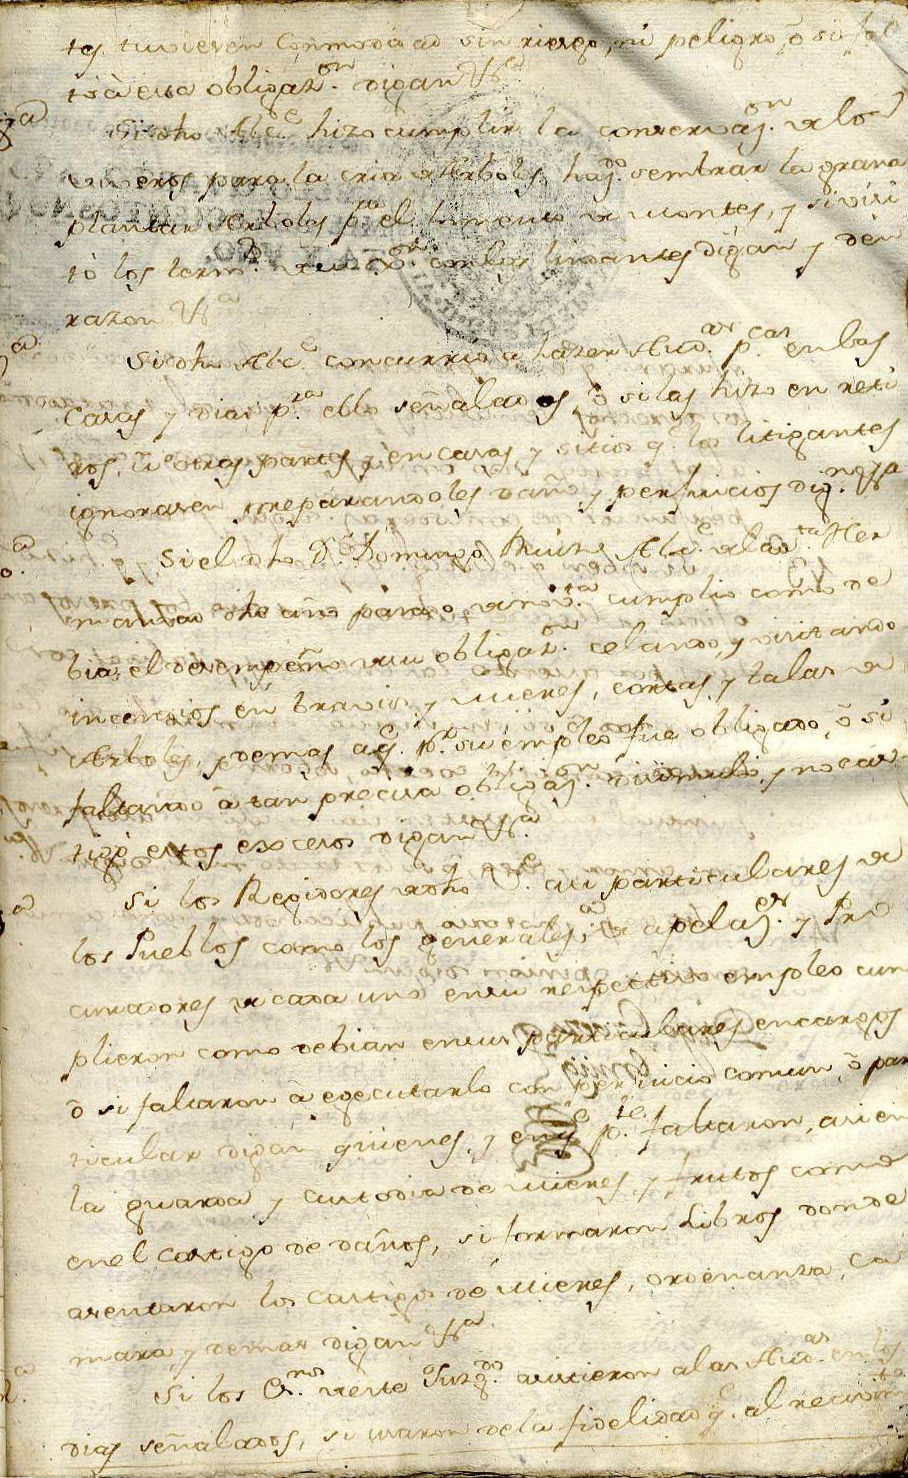 tes tuvieren Commodidad sin riesgo, ni peligro, ò si fal
tò à esa obligaz.on digan &.a
Si dho Alc.e hizo cumplir la conservaz.on de los
viveros para la cria de Arboles, haz.do sembrar la grana
plantar Arboles p.a el aumento de montes, y si visi
tò los term.s de su con los lindantes digan y den
razon &.a
Si dho Alc.e concurriò a hazer Aud.as p.cas en las
Casas y dias p.ra ello señalados, ò si las hizo en reti
ros, ù otras partes, y en casas y sitios q.e los litigantes
ignorasen preparandoles daño y perjuicios dig.n &.a
Si el dho D.n Domingo Alc.e de la S.ta Her
mandad dho año pasado de nov.ta cumplio como de
bia, el desempeño de su obligaz.on celando, y visitando
incendios en bravio, y mieses, cortas, y talas de
Arboles, y demas aq.e p.r su empleo fue obligado, ò si
faltando à tan precisa obligaz.on disimulò, y no cas
tigò estos excesos digan &.a
Si los Regidores de dho asi particulares de
los Pueblos como los generales, de apelaz.on y Pro
curadores de cada uno en su respectivo empleo cum
plieron como debian en sus particulares encargos
ò si faltaron à egecutarlo con perjuicio comun, ò par
ticular digan quienes, y en q.e p.te faltaron, asi en
la guarda y custodia de mieses, y frutos como
en el castigo de daños, si formaron Libros donde
asentaron los castigos de Mieses, ordenanza, Ca
mara, y demas digan &.a
Si los es.nos de este Juzg.do asistieron a las Aud.as en los
dias señalados, si usaron de la fidelidad q.e al